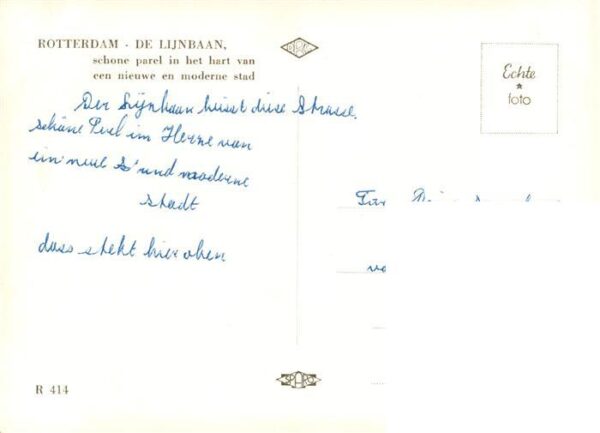 ROTTERDAM · DE LIJNBAAN,
schone parel in het hart van
een nieuwe en moderne stad
Echte
foto
Der Lijnbaan heisst diese Strasse.
schöne Perl im Herne van
ein neue und moderne
stadt
dass steht hier oben
Für
R 414
SPARO